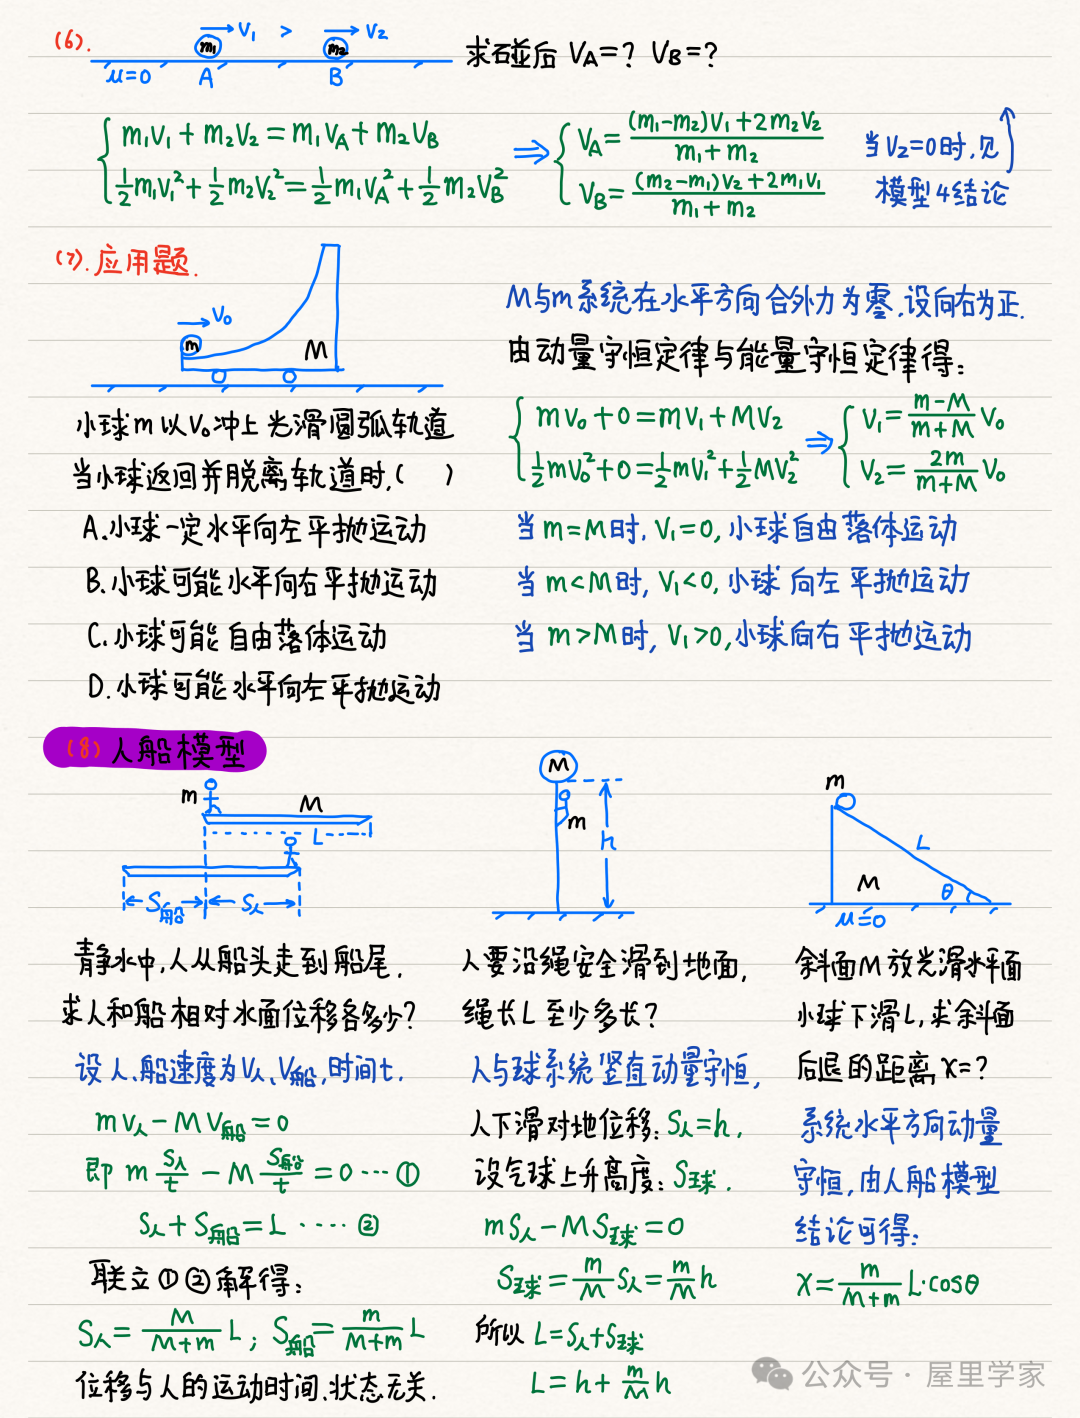 (6).
m₁ →V₁ > m₂ →V₂
μ=0 A B
求碰后 VA=? VB=?
m₁V₁+m₂V₂=m₁VA+m₂VB
½m₁V₁²+½m₂V₂²=½m₁VA²+½m₂VB²
⇒ VA=(m₁-m₂)V₁+2m₂V₂/m₁+m₂
VB=(m₂-m₁)V₂+2m₁V₁/m₁+m₂
当V₂=0时,见
模型4结论
(7).应用题.
V₀
m M
小球m以V₀冲上光滑圆弧轨道
当小球返回并脱离轨道时,( )
A.小球一定水平向左平抛运动
B.小球可能水平向右平抛运动
C.小球可能自由落体运动
D.小球可能水平向左平抛运动
M与m系统在水平方向合外力为零,设向右为正.
由动量守恒定律与能量守恒定律得:
mV₀+0=mV₁+MV₂
½mV₀²+0=½mV₁²+½MV₂²
⇒ V₁=m-M/m+M V₀
V₂=2m/m+M V₀
当m=M时,V₁=0,小球自由落体运动
当m<M时,V₁<0,小球向左平抛运动
当m>M时,V₁>0,小球向右平抛运动
(8)人船模型
m M
L
S船 S人
青静水中,人从船头走到船尾,
求人和船相对水面位移各多少?
设人、船速度为V人、V船,时间t.
mV人-MV船=0
即 m S人/t - M S船/t =0 ···①
S人+S船=L ·····②
联立①②解得:
S人=M/M+m L; S船=m/M+m L
位移与人的运动时间、状态无关.
M
m
h
人要沿绳安全滑到地面,
绳长L至少多长?
人与球系统竖直动量守恒,
人下滑对地位移:S人=h,
设气球上升高度:S球.
mS人-MS球=0
S球=m/M S人=m/M h
所以 L=S人+S球
L=h+m/M h
m
L
M θ
μ=0
斜面M放光滑水平面
小球下滑L,求斜面
后退的距离x=?
系统水平方向动量
守恒,由人船模型
结论可得:
x=m/M+m L·cosθ
公众号·屋里学家